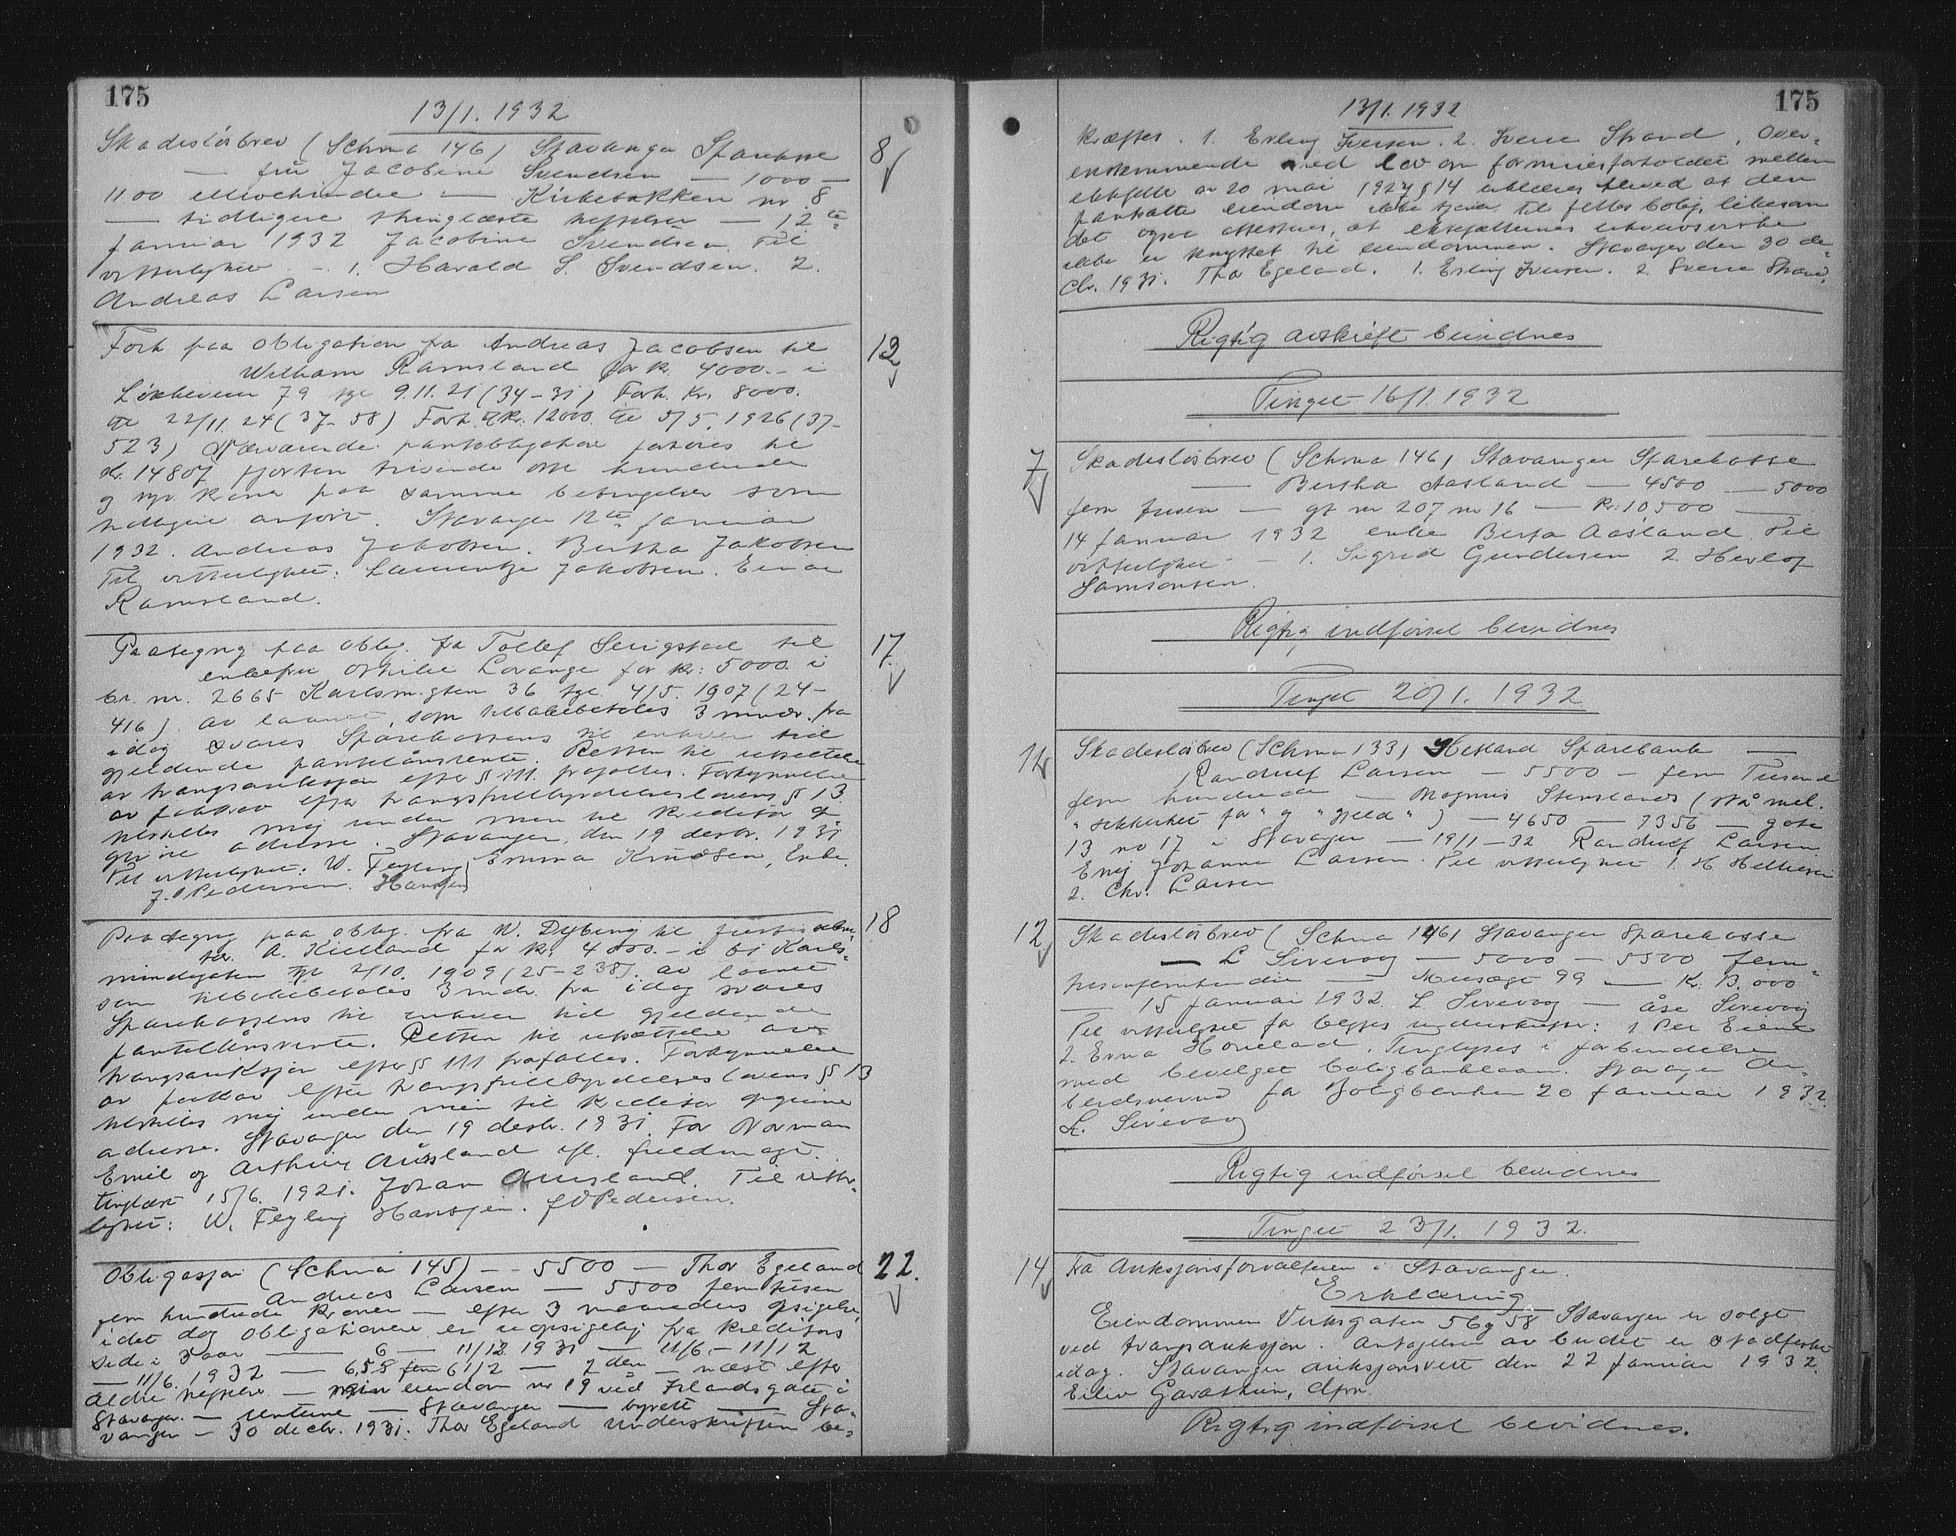 175
13/1. 1932
Skadesløsbrev (Schma 146) Stavanger Sparekasse
— fru Jacobine Svendsen — 1000 —
1100 ellevehundre — Kirkebakken nr. 8
— tidligere thinglæste heftelser — 12te
Januar 1932 Jacobine Svendsen. Til
vitterlighet — 1. Harald S. Svendsen. 2.
Andreas Larsen
8
Forh. paa obligation fra Andreas Jacobsen til
William Ramsland for kr. 4000.- i
Løkkeveien 79 tgl 9.11.21 (34-31) Forh. Kr. 8000.
tgl 22/11.24 (37-58) Forh. t. kr. 12000. tgl 5/5. 1926 (37-
523) Nærværende pantobligation forhøies til
kr. 14807 fjorten tusinde otte hundrede
og syv kroner paa samme betingelser som
tidligere anført. Stavanger 12te Januar
1932. Andreas Jakobsen. Bertha Jakobsen
Til vitterlighet: Laurentze Jakobsen. Einar
Ramsland.
12
Paategng paa oblig. fra Tollef Serigstad til
enkefru Othilie Lovange for kr: 5000 i
br. nr. 2665 Karlsm.gten 36 tgl. 4/5. 1907 (24-
416). av laanet, som tilbakebetales 3 mndr. fra
idag svares Sparekassens til enhver tid
gjeldende pantelånsrente. Retten til utsettelse
av tvangsauksjon efter § 111 frafalles. Forkynnelse
av forkrav efter tvangsfullbyrdelseslovens § 13
tilstilles mig under men til kreditor op-
givne adresse. Stavanger, den 19 desbr. 1931
Til vitterlighet: W. Feyling Emma Knudsen, Enke.
J. O Pedersen. Hansen
17.
Paategng paa oblig. fra W. Dybing til
A. Kielland for kr. 4000.- i bt Karls-
mindegaten tgl 2/10. 1909 (25-238). av laanet
som tilbakebetales 3 mdr. fra idag svares
Sparekassens til enhver tid gjeldende
pantelånsrente. Retten til utsettelse av
tvangsauksjon efter § 111 frafalles. Forkynnelse
av forkrav efter tvangsfullbyrdelseslovens § 13
tilstilles mig under men til kreditor opgivne
adresse. Stavanger den 19 desbr. 1931. For Norman
Emil og Arthur Ausland efl. fuldmagt.
tinglæst 15/6. 1921. Johan Ausland. Til vitter-
lighet: W. Feyling Hansen. J O Pedersen.
18
Obligasjon (Schma 145) — 5500 — Thor Egeland
— Andreas Larsen — 5500 fem tusen
fem hundrede kroner — efter 3 maaneders opsigelse,
idet dog obligationen er uopsigelig fra kreditors
side i 3 aar — 6 — 11/12 1931 — 11/6 - 11/12
— 11/6. 1932 — 6,5 % 6 1/2 — 2den — næst efter
ældre heftelser — min eiendom nr 19 ved Jrlandsgate i
Stavanger. — — Stavanger — byrett — Sta-
vanger — 30 decbr. 1931. Thor Egeland Underskriften be-
22.
175
13/1. 1932
kræftes. 1. Erling Iversen. 2. Sverre Strand. Over-
enskommende med lov om formuesforholdet mellem
ektefelle av 20 mai 1927 § 14 erklæres herved at den
pantsatte eiendom ikke tjener til felles bolig, likesom
det ogsaa attesteres, at ektefællernes erhvervsvirke
ikke er knyttet til eiendommen. Stavanger den 30 de-
cbr. 1931. Thor Egeland. 1. Erling Iversen. 2. Sverre Strand.
Rigtig avskrift bevidnes
Tinget 16/1. 1932
7
Skadesløsbrev (Schma 146) Stavanger Sparekasse
— Bertha Aasland — 4500 — 5000
fem tusen — gt nr 207 nr 16 — kr. 10500 —
14 Januar 1932 enke Berta Aasland Til
vitterlighet — 1. Sigrid Gundersen 2. Herlog
Samsonsen.
Rigtig indførsel bevidnes
Tinget 20/1. 1932
11
Skadesløsbrev (Schma 133) Hetland Sparebank —
Randulf Larsen — 5500 — fem Tusend
fem hundrede — Magnus Stenslands (Stå mel.
"sikkerhet for" og "gjeld") — 4650 — 7356 — gate
13 no 17 i Stavanger — 19/1-32 Randulf Larsen
Enig Johanne Larsen. Til vitterlighet 1. H Helliesen
2. Chr. Larsen
12
Skadesløsbrev (Schma 146) Stavanger Sparekasse
— L Sirevaag — 5000 — 5500 fem-
tusenfemhundre — Musegt 99 — Kr. 13,000
— 15 Januar 1932 L Sirevaag — åse Sirevaag
Til vitterlighet for begges underskrifter: 1 Per Eiane
2. Erna Haneland. Tinglyses i forbindelse
med bevilget boligbanklaan. Stavanger
for Boligbanken 20 Januar 1932.
L. Sirevaag
Rigtig indførsel bevidnes
Tinget 23/1. 1932.
14
Fra Auksjonsforvalteren i Stavanger.
Erklæring
Eiendommen Verksgaten 56 og 58 Stavanger er solgt
ved tvangsauksjon. Antagelsen av budet er stadfestet
idag. Stavanger auksjonsrett den 22 Januar 1932.
Eiliv Garathun, dfm.
Rigtig indførsel bevidnes.